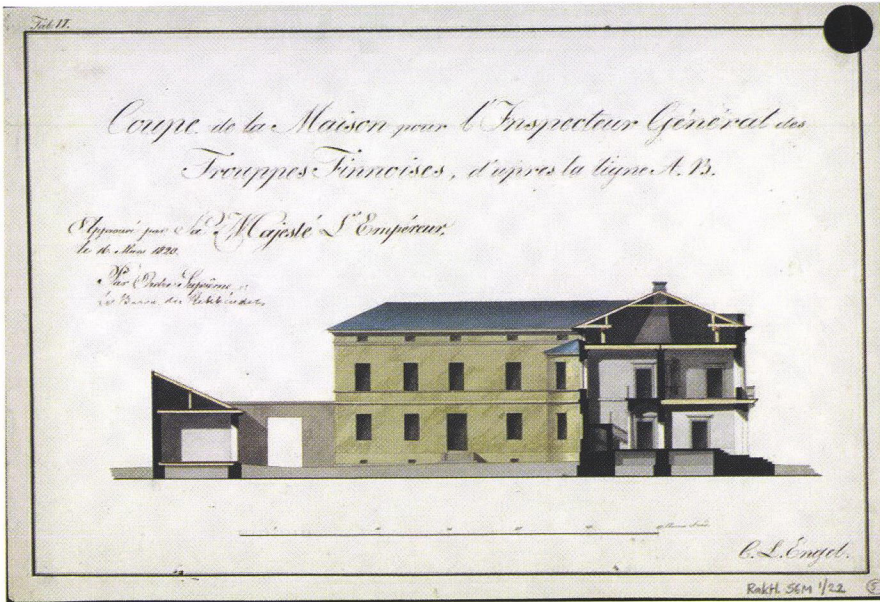 Tab. II.
Coupe de la Maison pour l'Inspecteur Général des
Trouppes Finnoises, d'apres la ligne A. B.
Approuvé par Sa Majesté L'Empéreur,
le 16. Mars 1820.
Par Ordre Suprème
C. L. Engel.
RakH. SEM 1/22
5